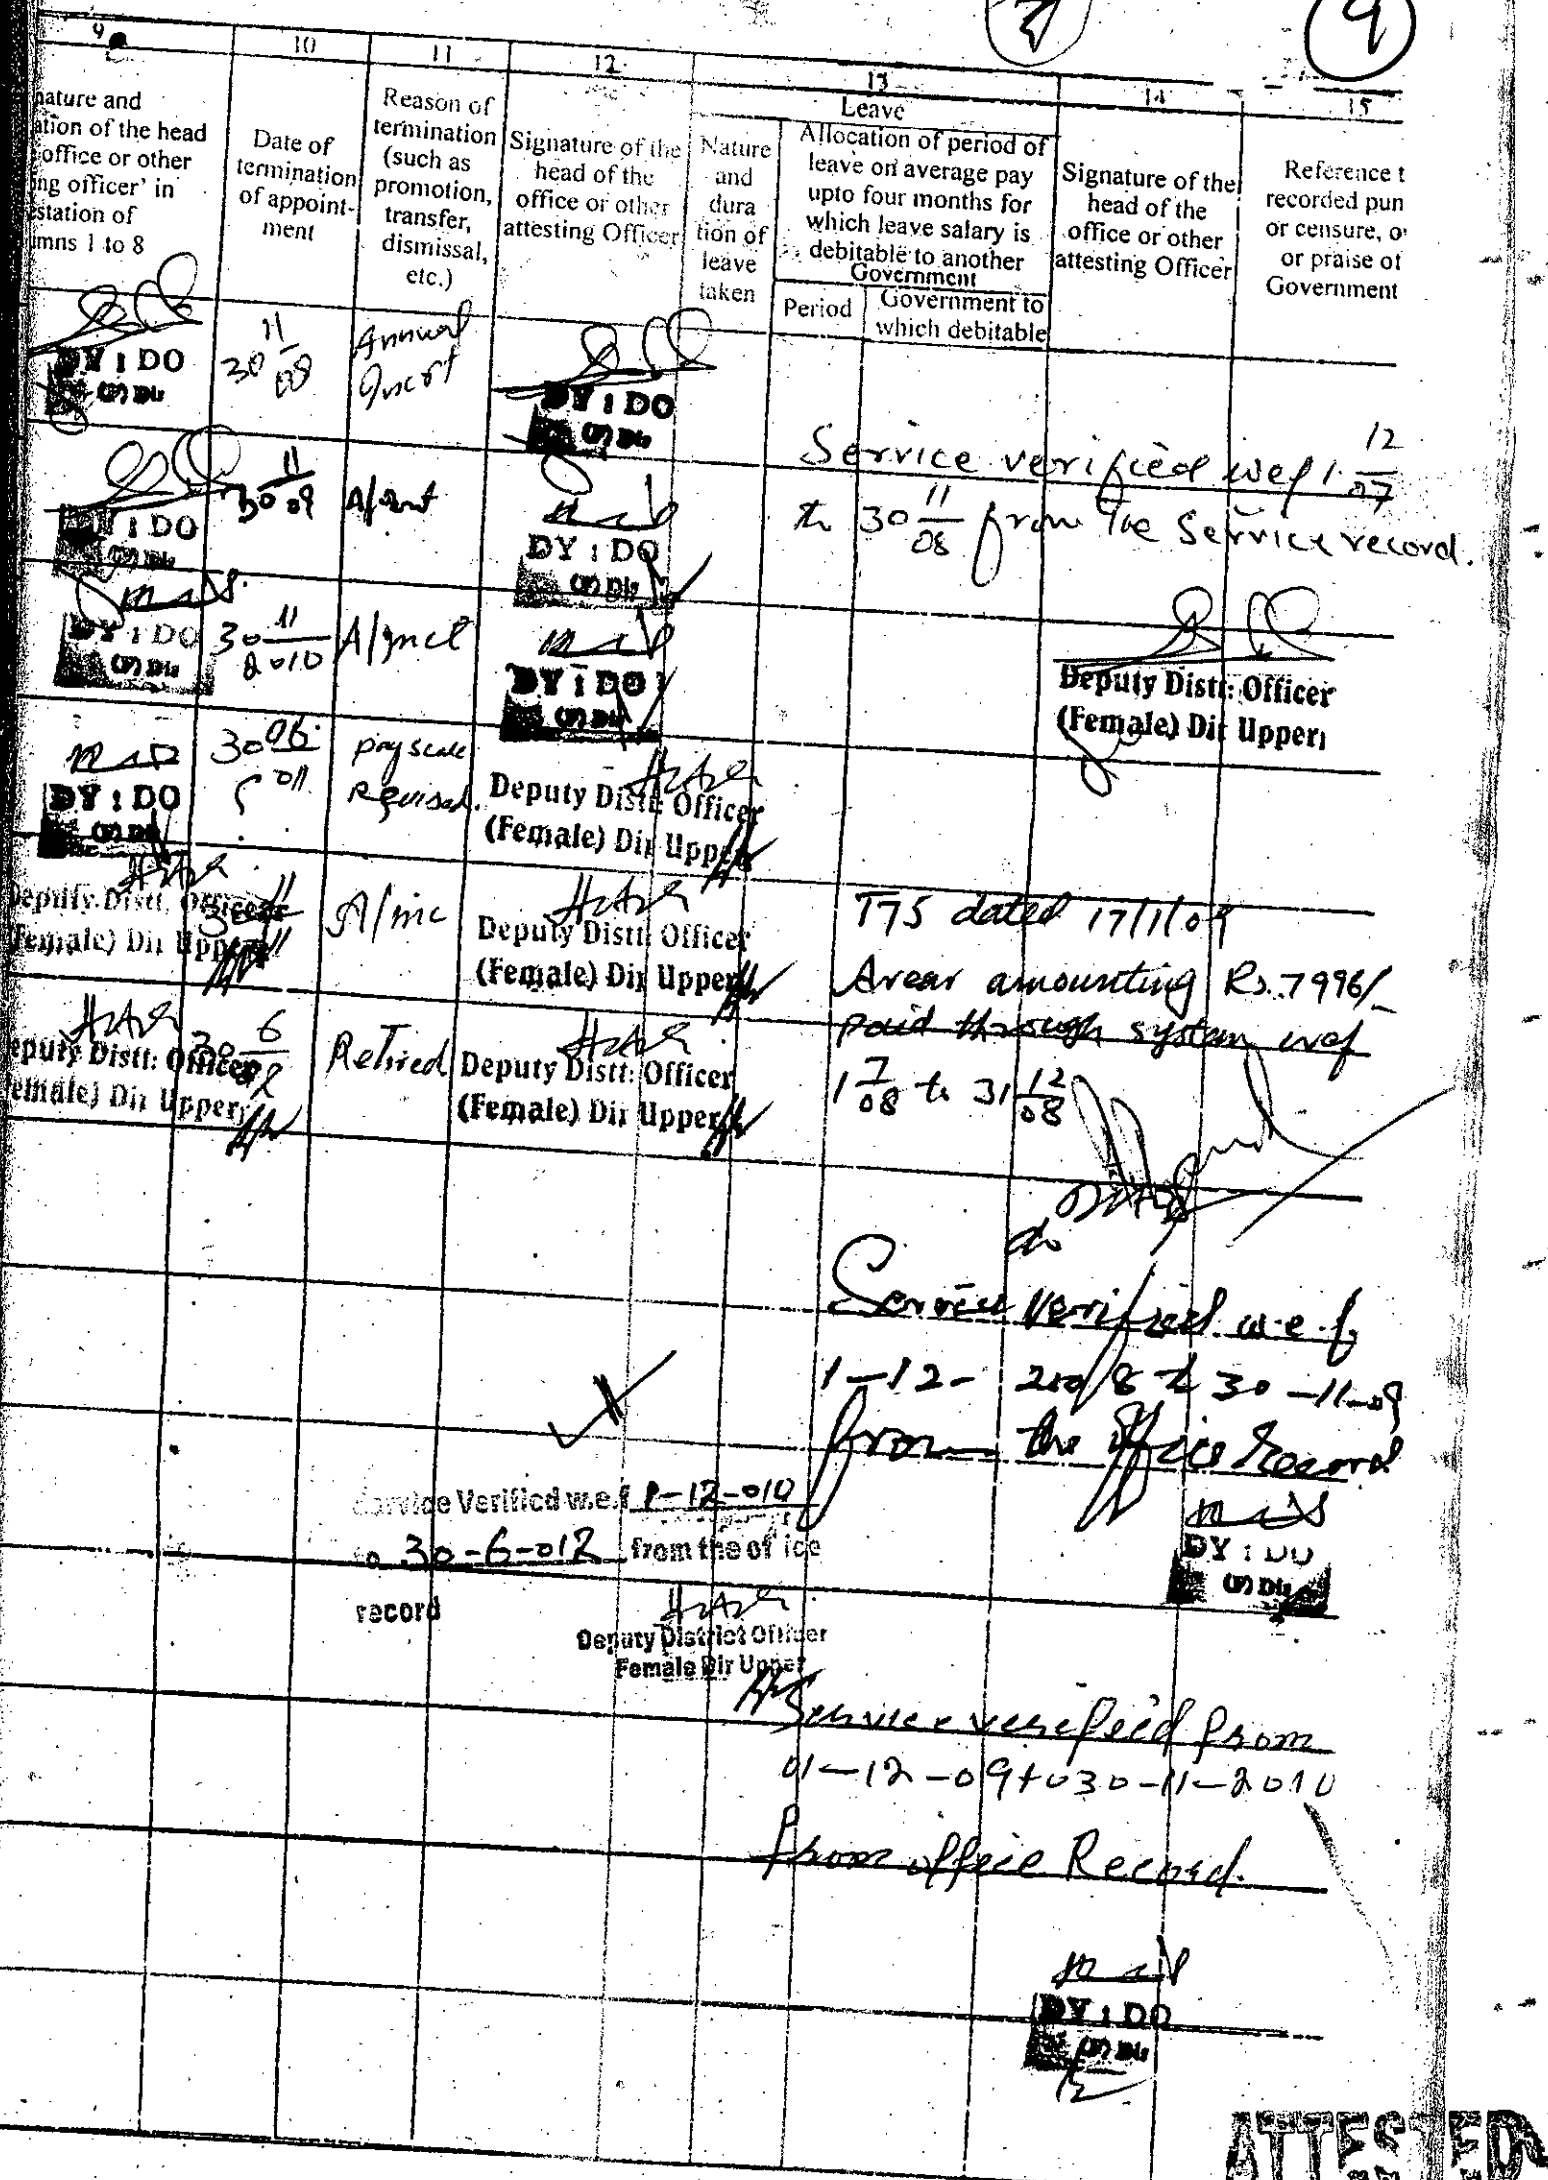 9
9 10 11 12 13 14 15
nature and
ation of the head
office or other
ng officer' in
station of
mns 1 to 8
Date of
termination
of appoint-
ment
Reason of
termination
(such as
promotion,
transfer,
dismissal,
etc.)
Signature of the
head of the
office or other
attesting Officer
Leave
Nature
and
dura
tion of
leave
taken
Allocation of period of
leave on average pay
upto four months for
which leave salary is
debitable to another
Government
Period
Government to
which debitable
Signature of the
head of the
office or other
attesting Officer
Reference t
recorded pun
or censure, o
or praise of
Government
DY : DO
(F) Dir
30 11/08
Annual
DY : DO
(F) Dir
Service verified wef 1. 12/07
to 30 11/08 from the Service record.
Deputy Distt: Officer
(Female) Dir Upper
DY : DO
(F) Dir
30 11/09
DY : DO
(F) Dir
DY : DO
(F) Dir
30 11/2010
A/incl
DY : DO
(F) Dir
DY : DO
(F) Dir
30 06/011
pay scale
Revised.
Deputy Distt: Officer
(Female) Dir Upper
Deputy Distt. Officer
Female) Dir Upper
A/inc
Deputy Distt: Officer
(Female) Dir Upper
eputy Distt: Officer
emale) Dir Upper
30 6
Retired
Deputy Distt: Officer
(Female) Dir Upper
T75 dated 17/1/09
Arear amounting Rs.7996/-
paid through system wef
1 7/08 to 31 12/08
Service Verified w.e.f.
1-12-2008 to 30-11-09
from the office Record
DY : DO
(F) Dir
Service Verified w.e.f 1-12-010
to 30-6-012 from the of ice
record
Deputy District Officer
Female Dir Upper
Service verified from
01-12-09 to 30-11-2010
from office Record.
DY : DO
(F) Dir
ATTESTED